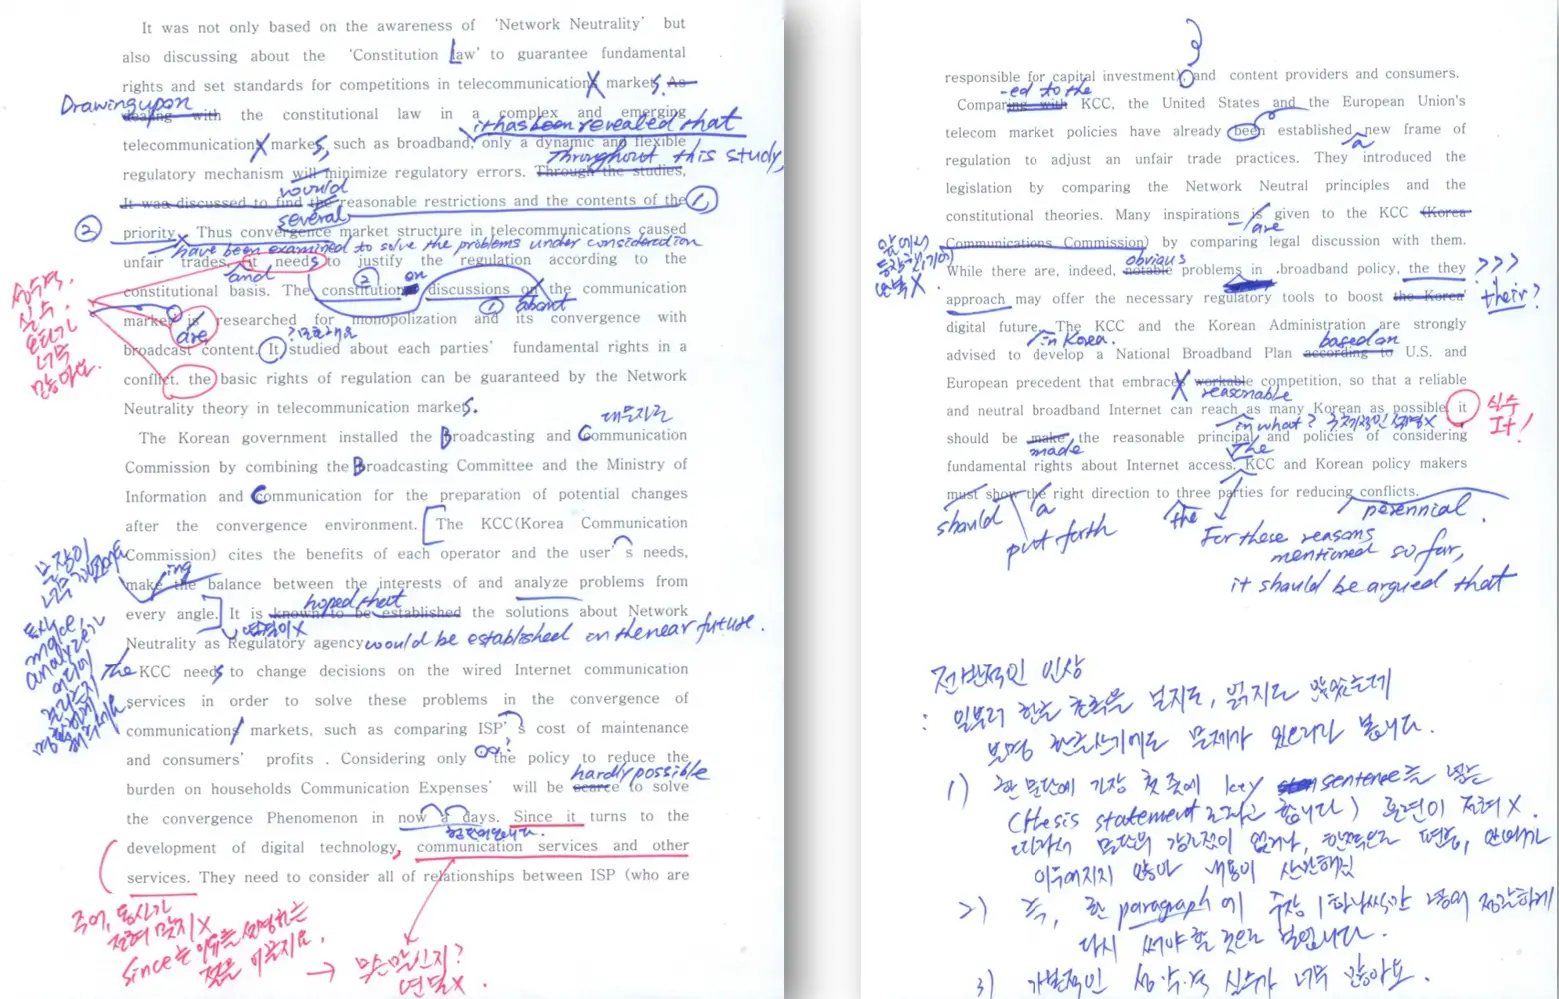 It was not only based on the awareness of 'Network Neutrality' but
also discussing about the 'Constitution Law' to guarantee fundamental
rights and set standards for competitions in telecommunications markets. As
Drawing upon
dealing with the constitutional law in a complex and emerging
it has been revealed that
telecommunications markets, such as broadband, only a dynamic and flexible
Throughout this study,
regulatory mechanism will minimize regulatory errors. Through the studies,
would
It was discussed to find the reasonable restrictions and the contents of the ①
several
② priority. Thus convergence market structure in telecommunications caused
have been examined to solve the problems under consideration
unfair trades, it needs to justify the regulation according to the
and ② on
constitutional basis. The constitution discussions on the communication
① about
market is researched for monopolization and its convergence with
are
broadcast content. It studied about each parties' fundamental rights in a
conflict. the basic rights of regulation can be guaranteed by the Network
Neutrality theory in telecommunication markets.
대문자로
The Korean government installed the Broadcasting and Communication
Commission by combining the Broadcasting Committee and the Ministry of
Information and Communication for the preparation of potential changes
after the convergence environment. [The KCC(Korea Communication
Commission) cites the benefits of each operator and the user's needs,
ing
make the balance between the interests of and analyze problems from
hoped that
every angle.] It is known to be established the solutions about Network
Neutrality as Regulatory agency would be established in the near future.
The KCC needs to change decisions on the wired Internet communication
services in order to solve these problems in the convergence of
communication markets, such as comparing ISP's cost of maintenance
and consumers' profits . Considering only the policy to reduce the
hardly possible
burden on households Communication Expenses' will be scarce to solve
the convergence Phenomenon in now a days. Since it turns to the
한단어입니다.
development of digital technology, communication services and other
services. They need to consider all of relationships between ISP (who are
주어, 동사가
전혀 맞지 X
since는 이유를 설명하는
→ 무슨 말인지?
연결 X.
성·수·격
실수.
오타가
너무
많아요.
문장이
동사
make,
analyze가
responsible for capital investment), and content providers and consumers.
-ed to the
Comparing with KCC, the United States and the European Union's
telecom market policies have already been established new frame of
a
regulation to adjust an unfair trade practices. They introduced the
legislation by comparing the Network Neutral principles and the
constitutional theories. Many inspirations is given to the KCC (Korea
are
Communications Commission) by comparing legal discussion with them.
앞에서
등장했기에
반복 X.
obvious
While there are, indeed, notable problems in broadband policy, the they >>>
approach may offer the necessary regulatory tools to boost the Korea
their?
digital future. The KCC and the Korean Administration are strongly
in Korea.
based on
advised to develop a National Broadband Plan according to U.S. and
European precedent that embraces workable competition, so that a reliable
reasonable
and neutral broadband Internet can reach as many Korean as possible. it
실수
It!
in what? 구체적인 설명 X
should be make the reasonable principal and policies of considering
made
The
fundamental rights about Internet access. KCC and Korean policy makers
must show the right direction to three parties for reducing conflicts.
should a
put forth
the
perennial.
For these reasons
mentioned so far,
it should be argued that
전반적인 인상
: 일부러 한글 초록을 보지도, 읽지도 않았는데
분명 한글쓰기에도 문제가 있으리라 봅니다.
1) 한 문단에 가장 첫 줄에 key sentence를 넣는
(thesis statement 라고 합니다) 훈련이 전혀 X.
따라서 문단의 강조점이 없거나,
이루어지지 않아 내용이 산만해짐
2) 즉, 한 paragraph에 주장 1하나씩만 넣어 정갈하게
다시 써야 할 것으로 보입니다.
3) 개별적인 성·수·격 실수가 너무 많아요.